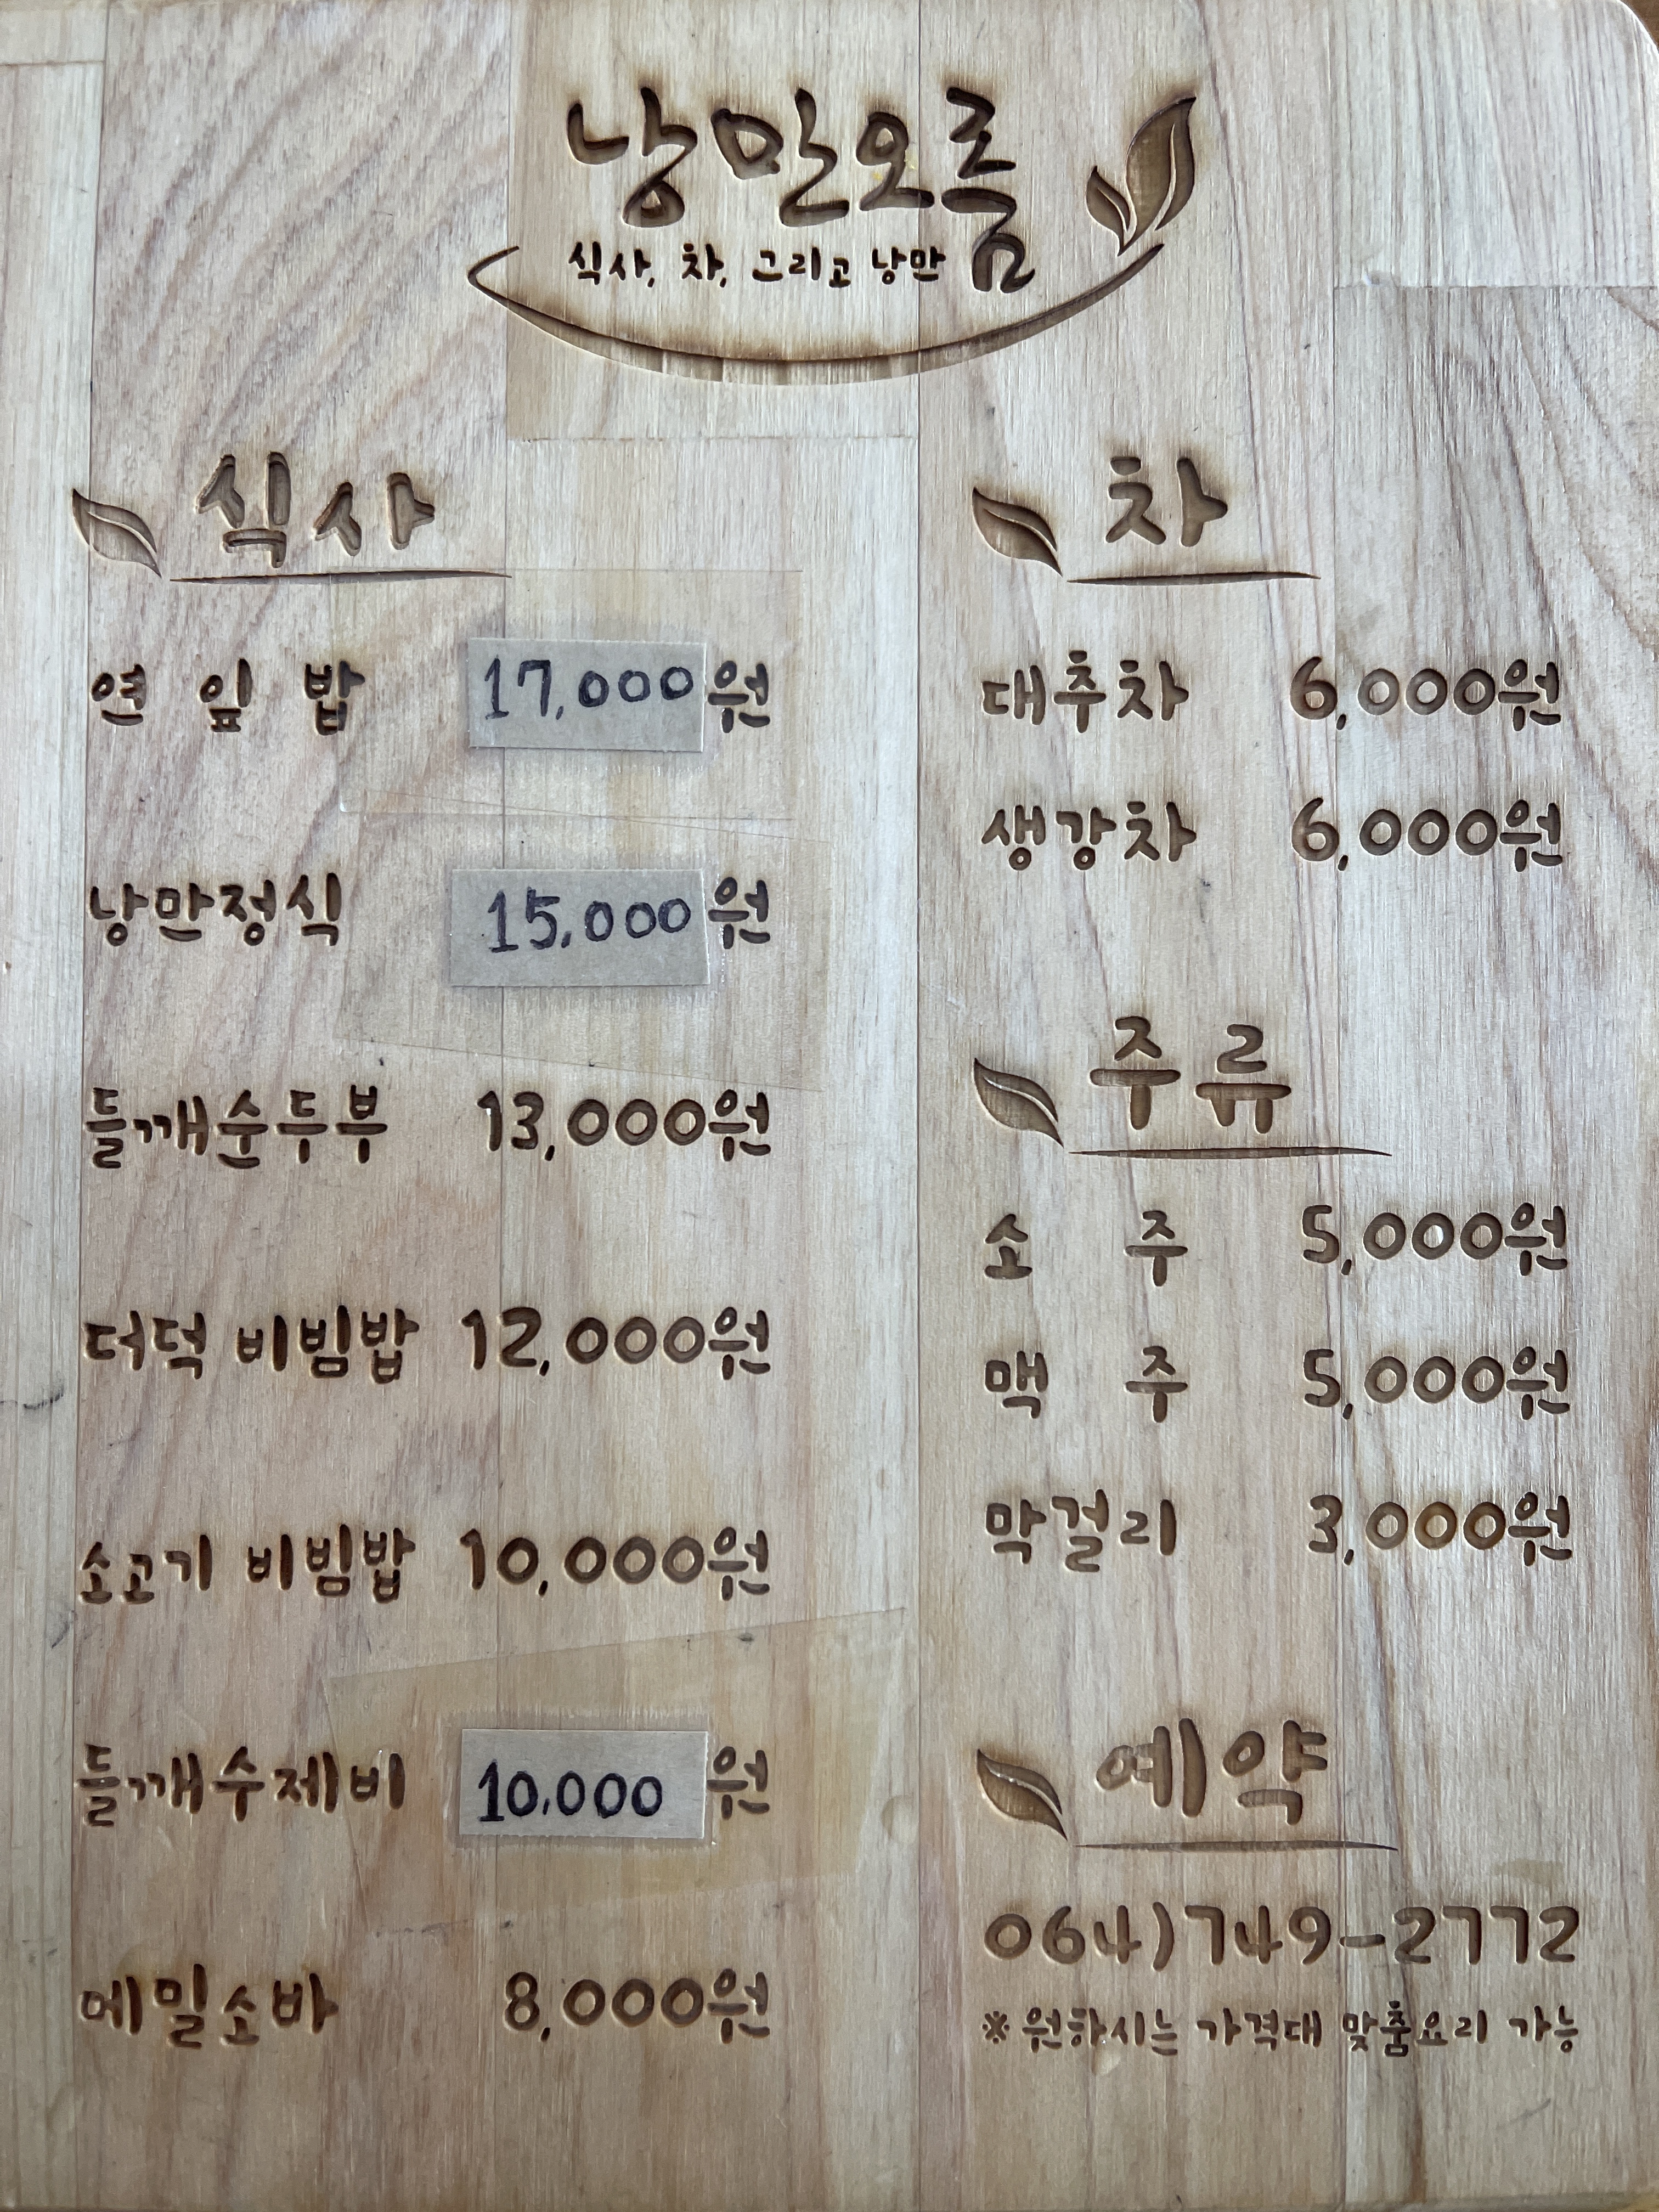 낭만오름
식사, 차, 그리고 낭만
식사
연 잎 밥 17,000원
낭만정식 15,000원
들깨순두부 13,000원
더덕 비빔밥 12,000원
소고기 비빔밥 10,000원
들깨수제비 10,000원
메밀소바 8,000원
차
대추차 6,000원
생강차 6,000원
주류
소 주 5,000원
맥 주 5,000원
막걸리 3,000원
예약
064)749-2772
※ 원하시는 가격대 맞춤요리 가능